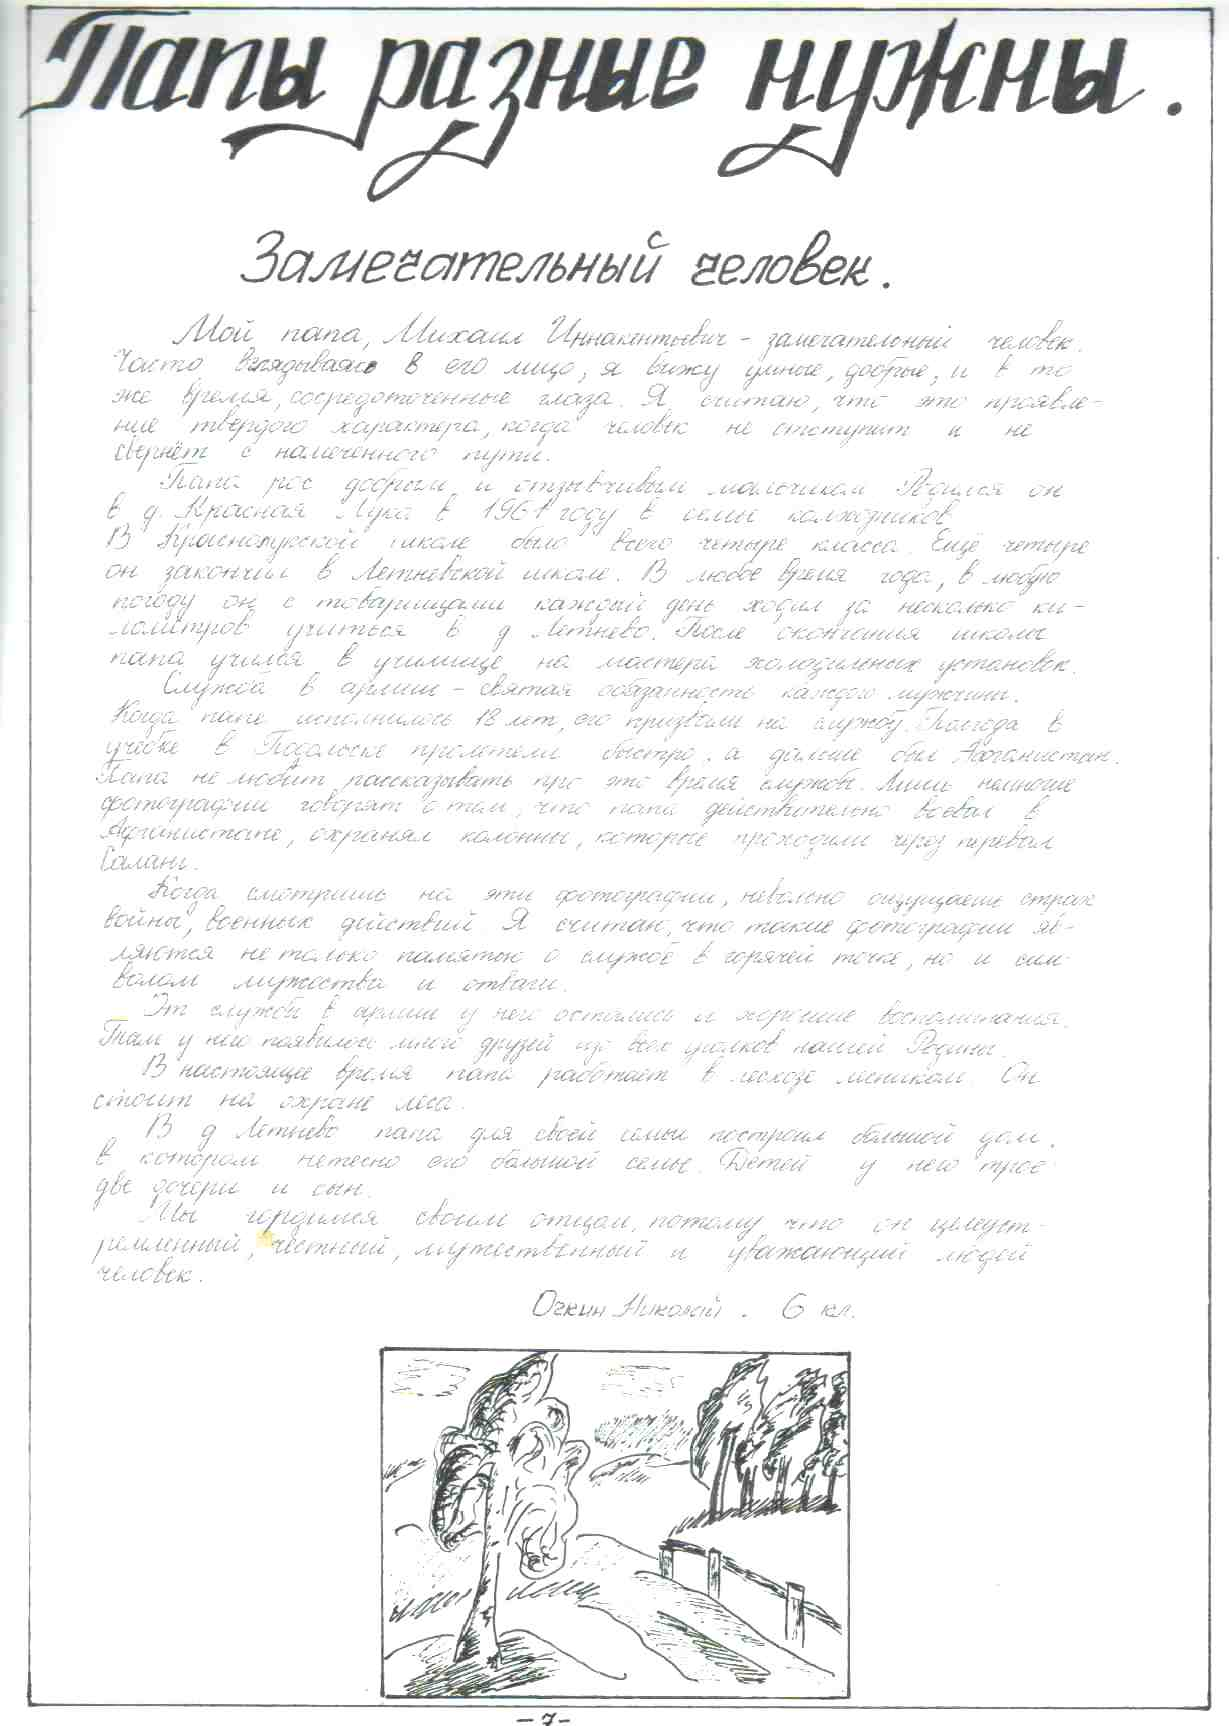 Папы разные нужны.
Замечательный человек.
Мой папа, Михаил Иннакентьевич – замечательный человек.
Часто вглядываясь в его лицо, я вижу умные, добрые, и в то
же время, сосредоточенные глаза. Я считаю, что это проявле-
ние твёрдого характера, когда человек не отступит и не
свернёт с намеченного пути.
Папа рос добрым и отзывчивым мальчиком. Родился он
в д. Красная Лука в 1961 году в семье колхозников.
В Краснолукской школе было всего четыре класса. Ещё четыре
он закончил в Летневской школе. В любое время года, в любую
погоду он с товарищами каждый день ходил за несколько ки-
лометров учиться в д Летнево. После окончания школы
папа учился в училище на мастера холодильных установок.
Служба в армии – святая обязанность каждого мужчины.
Когда папе исполнилось 18 лет, его призвали на службу. Полгода в
учебке в Подольске пролетели быстро, а дальше был Афганистан.
Папа не любит рассказывать про это время службы. Лишь немногие
фотографии говорят о том, что папа действительно воевал в
Афганистане, охранял колонны, которые проходили через перевал
Саланг.
Когда смотришь на эти фотографии, невольно ощущаешь страх
войны, военных действий. Я считаю, что такие фотографии яв-
ляются не только памятью о службе в горячей точке, но и сим-
волом мужества и отваги.
От службы в армии у него остались и хорошие воспоминания.
Там у него появилось много друзей из всех уголков нашей Родины.
В настоящее время папа работает в лесхозе лесником. Он
стоит на охране леса.
В д Летнево папа для своей семьи построил большой дом,
в котором нетесно его большой семье. Детей у него трое:
две дочери и сын.
Мы гордимся своим отцом, потому что он целеуст-
ремленный, честный, мужественный и уважающий людей
человек.
Очкин Николай. 6 кл.
– 7 –